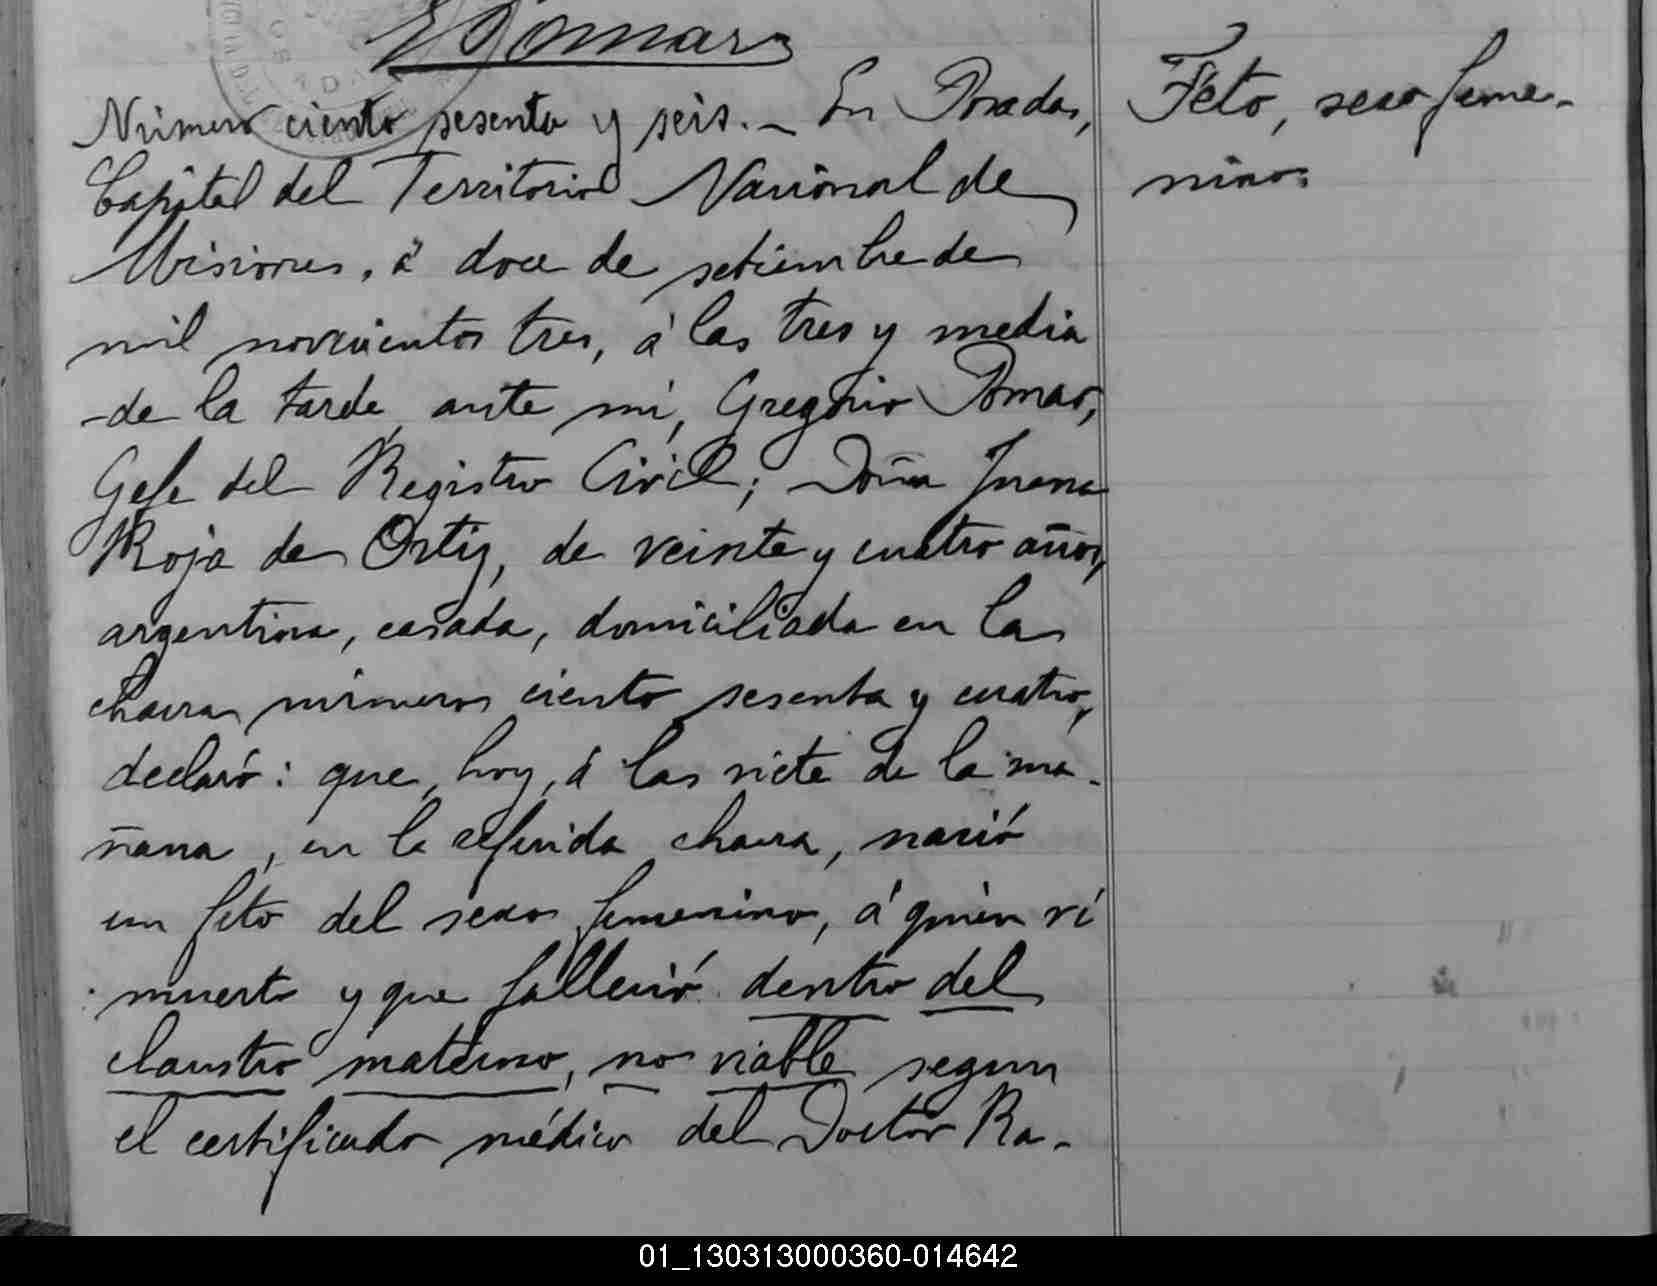 Pomar
Número ciento sesenta y seis. — En Posadas,
Capital del Territorio Nacional de
Misiones, á doce de setiembre de
mil novecientos tres, á las tres y media
de la tarde, ante mí, Gregorio Pomar,
Gefe del Registro Civil; Doña Juana
Roja de Ortiz, de veinte y cuatro años,
argentina, casada, domiciliada en la
chacra número ciento sesenta y cuatro,
declaró: que, hoy, á las siete de la ma-
ñana, en la referida chacra, nació
un feto del sexo femenino, á quien ví
muerto y que falleció dentro del
claustro materno, no viable segun
el certificado médico del Doctor Ra-
Feto, sexo feme-
nino.
01_130313000360-014642